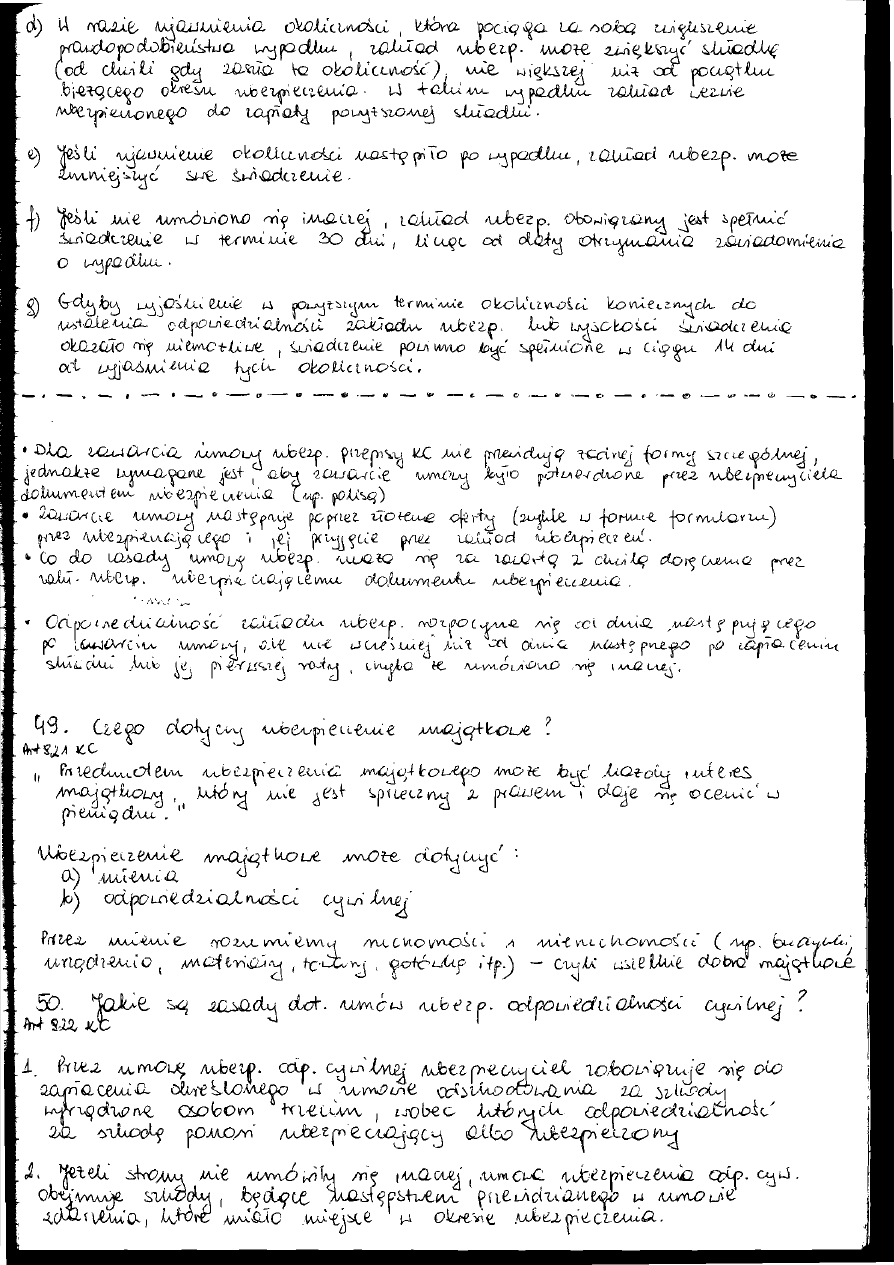 d) W razie ujawnienia okoliczności, która pociąga za sobą zwiększenie
prawdopodobieństwa wypadku, zakład ubezp. może zwiększyć składkę
(od chwili gdy zaszła ta okoliczność), nie większej niż od początku
bieżącego okresu ubezpieczenia. W takim wypadku zakład wezwie
ubezpieczonego do zapłaty powyższonej składki.
e) Jeśli ujawnienie okoliczności nastąpiło po wypadku, zakład ubezp. może
zmniejszyć swe świadczenie.
f) Jeśli nie umówiono się inaczej, zakład ubezp. obowiązany jest spełnić
świadczenie w terminie 30 dni, licząc od daty otrzymania zawiadomienia
o wypadku.
g) Gdyby wyjaśnienie w powyższym terminie okoliczności koniecznych do
ustalenia odpowiedzialności zakładu ubezp. lub wysokości świadczenia
okazało się niemożliwe, świadczenie powinno być spełnione w ciągu 14 dni
od wyjaśnienia tych okoliczności.
• Dla zawarcia umowy ubezp. przepisy KC nie przewidują żadnej formy szczególnej,
jednakże wymagane jest, aby zawarcie umowy było potwierdzone przez ubezpieczyciela
dokumentem ubezpieczenia (np. polisą)
• Zawarcie umowy następuje poprzez złożenie oferty (zwykle w formie formularzu)
przez ubezpieczającego i jej przyjęcie przez zakład ubezpieczeń.
• Co do zasady umowę ubezp. uważa się za zawartą z chwilą doręczenia przez
zakł. ubezp. ubezpieczającemu dokumentu ubezpieczenia.
• Odpowiedzialność zakładu ubezp. rozpoczyna się od dnia następującego
po zawarciu umowy, ale nie wcześniej niż od dnia następnego po zapłaceniu
składki lub jej pierwszej raty, chyba że umówiono się inaczej.
49. Czego dotyczy ubezpieczenie majątkowe?
Art 821 KC
„Przedmiotem ubezpieczenia majątkowego może być każdy interes
majątkowy, który nie jest sprzeczny z prawem i daje się ocenić w
pieniądzu."
Ubezpieczenie majątkowe może dotyczyć:
a) mienia
b) odpowiedzialności cywilnej
Przez mienie rozumiemy ruchomości i nieruchomości (np. budynki,
urządzenia, materiały, towary, gotówkę itp.) – czyli wszelkie dobra majątkowe
50. Jakie są zasady dot. umów ubezp. odpowiedzialności cywilnej?
Art 822 KC
1. Przez umowę ubezp. odp. cywilnej ubezpieczyciel zobowiązuje się do
zapłacenia określonego w umowie odszkodowania za szkody
wyrządzone osobom trzecim, wobec których odpowiedzialność
za szkodę ponosi ubezpieczający albo ubezpieczony
2. Jeżeli strony nie umówiły się inaczej, umowa ubezpieczenia odp. cyw.
obejmuje szkody, będące następstwem przewidzianego w umowie
zdarzenia, które miało miejsce w okresie ubezpieczenia.